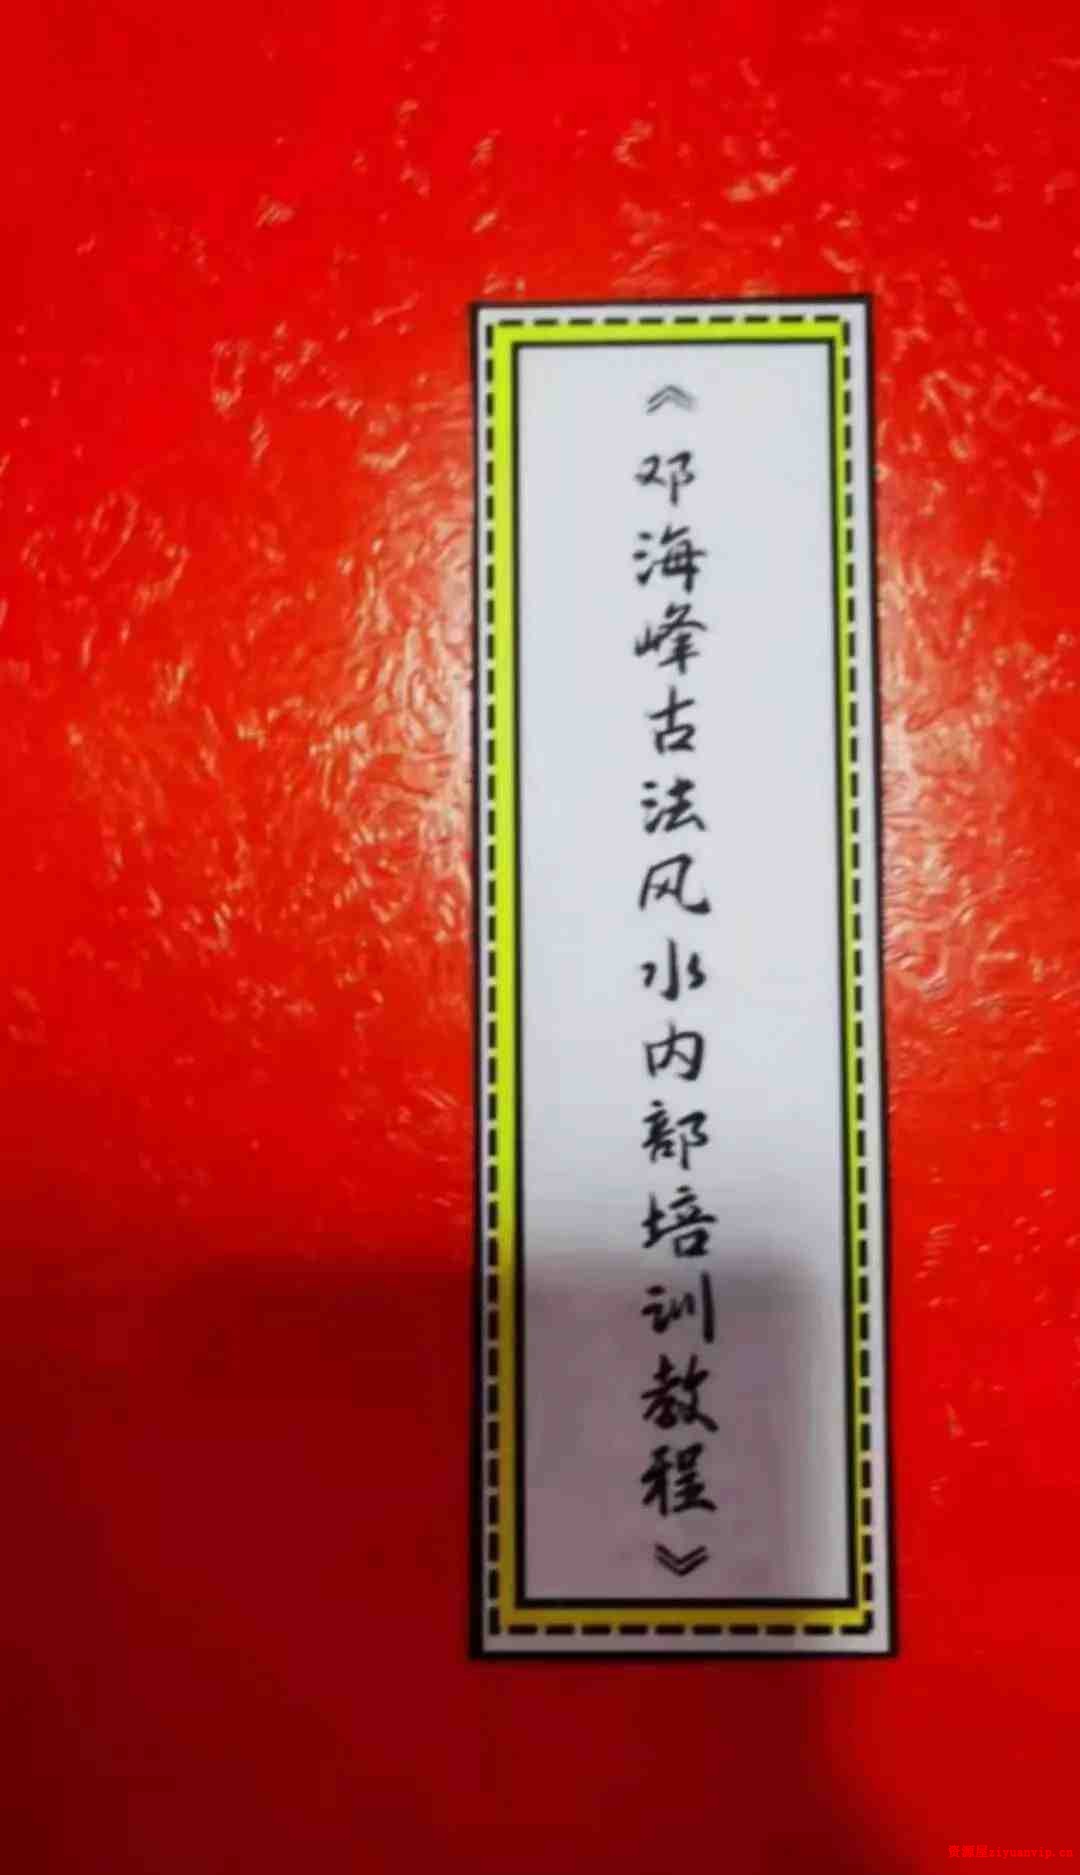 《邓海峰古法风水内部培训教程》
资源屋ziyuanvip.cn